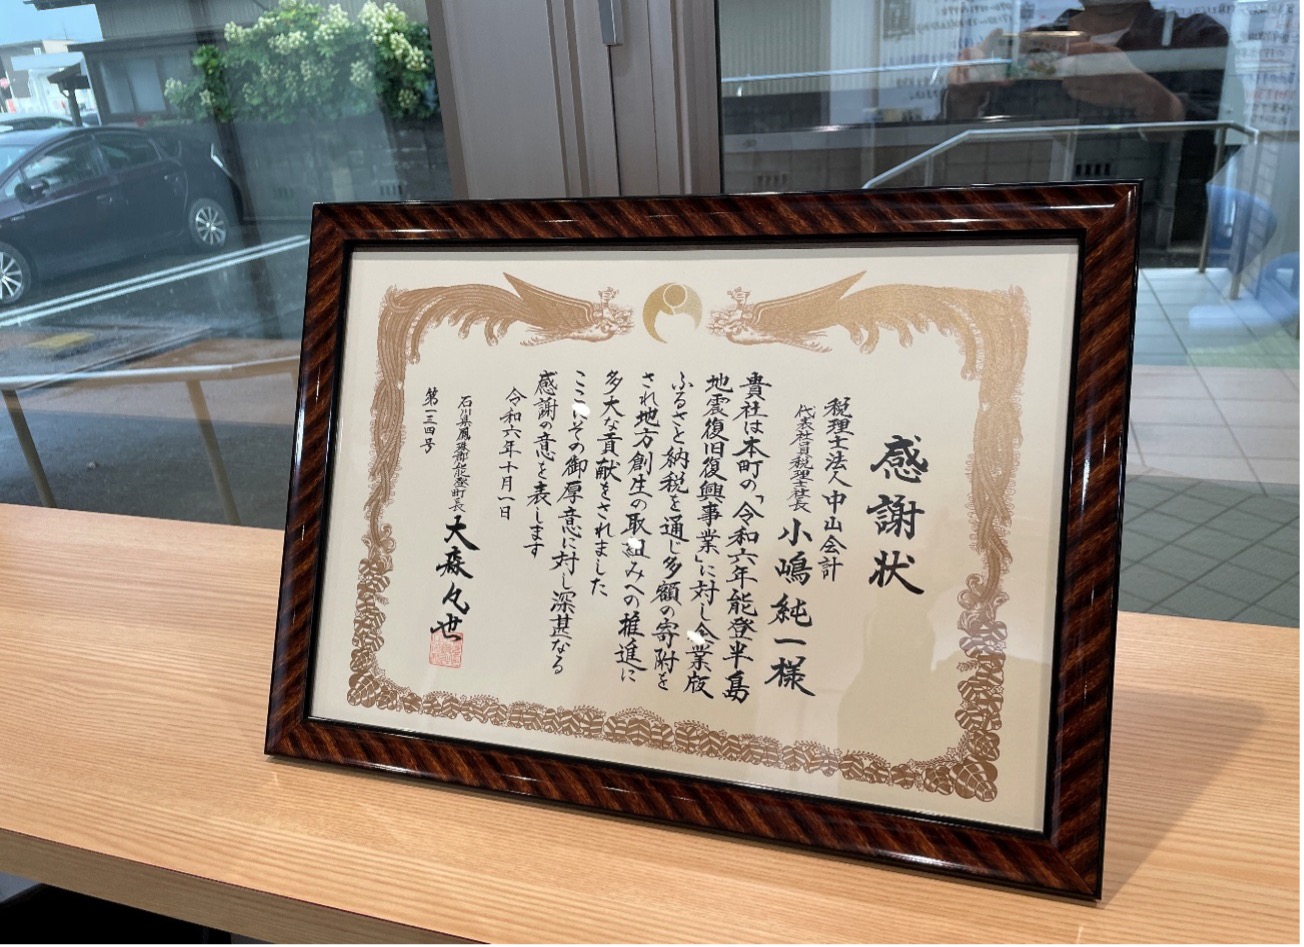 感謝状
税理士法人中山会計
代表社員税理士社長 小嶋純一様
貴社は本町の「令和六年能登半島
地震復旧復興事業」に対し企業版
ふるさと納税を通じ多額の寄附を
され地方創生の取組みへの推進に
多大な貢献をされました
ここにその御厚意に対し深甚なる
感謝の意を表します
令和六年十月一日
石川県鳳珠郡能登町長 大森凡世
第一三四号